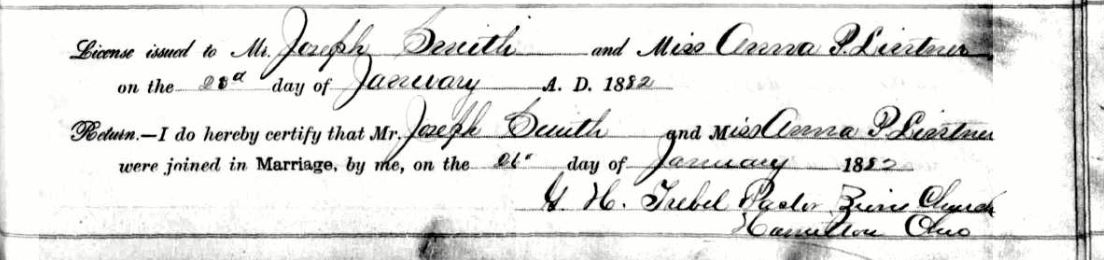 License issued to Mr. Joseph Smith and Miss Anna P. Lintner
on the day of January A. D. 1882
Return.—I do hereby certify that Mr. Joseph Smith and Miss Anna P. Lintner
were joined in Marriage, by me, on the day of January 1882
G. H. Trebel Pastor Zions Church
Hamilton Ohio